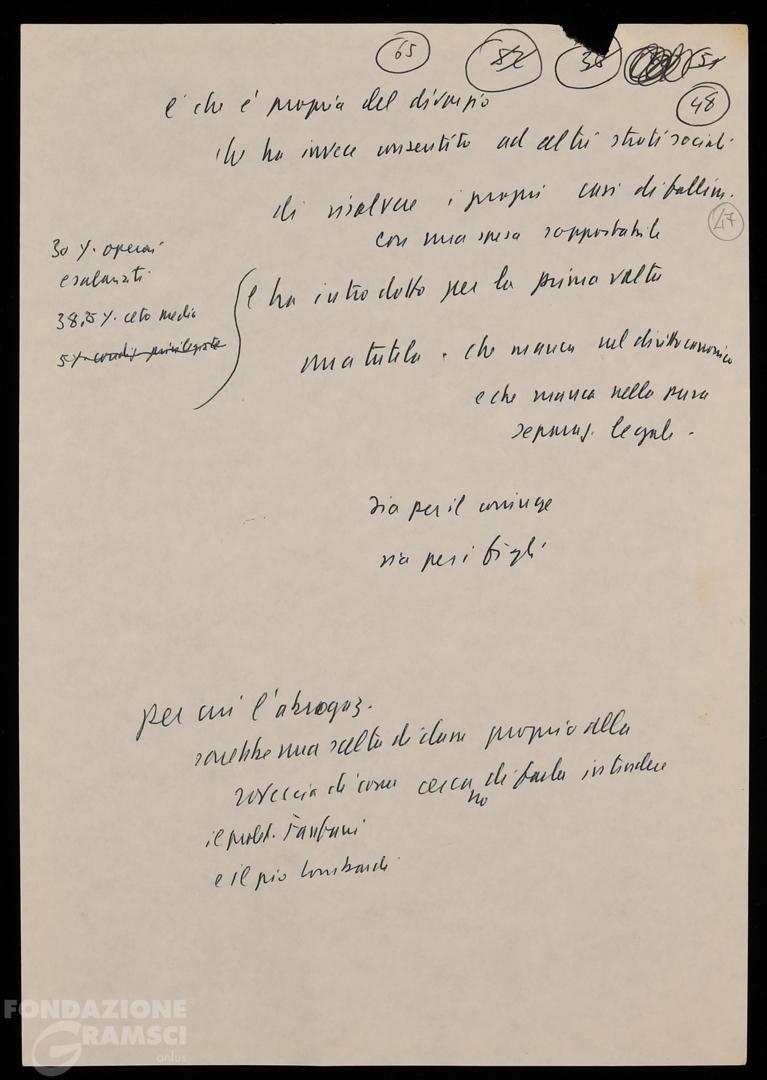 65 82 38 51
48
e che è propria del divorzio
che ha invece consentito ad altri strati sociali
di risolvere i propri casi di fallim.
47
con una spesa sopportabile
30 %. operai
e salariati
38,5 %. ceto medio
5 %
e ha introdotto per la prima volta
una tutela . che manca nel diritto canonico
e che manca nella pura
separaz. legale -
sia per il coniuge
sia per i figli
per cui l'abrogaz.
sarebbe una scelta di classe proprio alla
rovescia di come cercano di farla intendere
il prof. Fanfani
e il pio Lombardi
FONDAZIONE
GRAMSCI
onlus